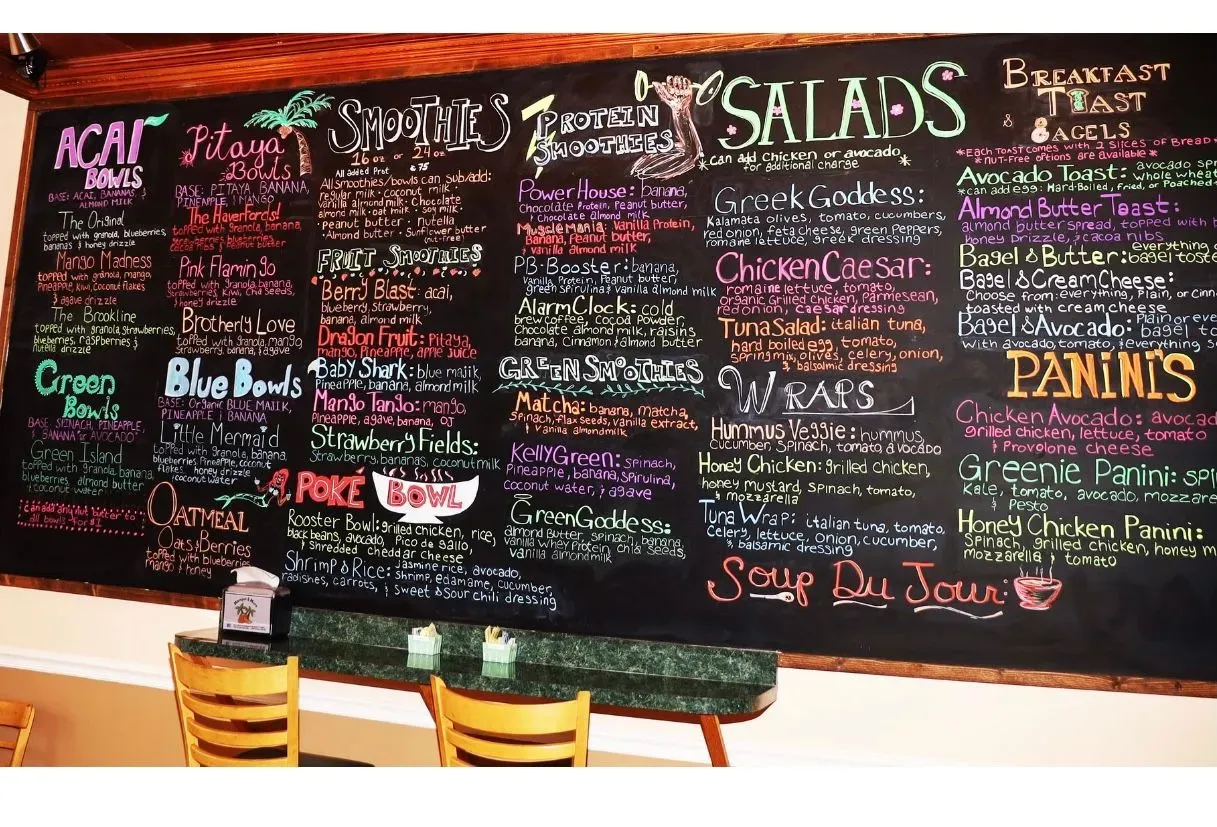 ACAI
BOWLS
BASE: ACAI, BANANAS, &
ALMOND MILK
The Original
topped with granola, blueberries,
bananas & honey drizzle
Mango Madness
topped with granola, mango,
Pineapple, Kiwi, Coconut flakes
& agave drizzle
The Brookline
topped with granola, strawberries,
blueberries, raspberries &
nutella drizzle
Green
Bowls
BASE: SPINACH, PINEAPPLE,
BANANA or AVOCADO
Green Island
topped with granola, banana,
blueberries, almond butter
& coconut water
* can add any nut butter to
all bowls for $1
Pitaya
Bowls
BASE: PITAYA, BANANA,
PINEAPPLE, & MANGO
The Haverfords!
topped with granola, banana,
& Peanut butter
Pink Flamingo
topped with granola, banana,
Strawberries, Kiwi, Chia Seeds,
& honey drizzle
Brotherly Love
topped with Granola, mango,
Strawberry, banana, & agave
Blue Bowls
BASE: Organic BLUE MAJIK,
PINEAPPLE, & BANANA
Little Mermaid
topped with Granola, banana,
blueberries, Pineapple, coconut
flakes honey drizzle
& coconut water
OATMEAL
Oats & Berries
topped with blueberries,
mango & honey
SMOOTHIES
16 oz or 24 oz
All added Prot .75
All smoothies/bowls can sub/add:
regular milk • coconut milk •
vanilla almond milk • Chocolate
almond milk • oat milk • soy milk •
• peanut butter • Nutella
• Almond butter • Sunflower butter
(nut-free)
FRUIT SMOOTHIES
Berry Blast: acai,
blueberry, strawberry,
banana, almond milk
Dragon Fruit: Pitaya,
mango, Pineapple, apple juice
Baby Shark: blue majik,
Pineapple, banana, almond milk
Mango Tango: mango,
Pineapple, agave, banana, OJ
Strawberry Fields:
Strawberry, bananas, coconut milk
POKÉ BOWL
Rooster Bowl: grilled chicken, rice,
black beans, avocado, Pico de gallo,
& shredded cheddar cheese
Shrimp & Rice: Jasmine rice, avocado,
Shrimp, edamame, cucumber,
radishes, carrots, & sweet & Sour chili dressing
PROTEIN
SMOOTHIES
Power House: banana,
Chocolate Protein, Peanut butter,
& Chocolate almond milk
Muscle Mania: Vanilla Protein,
Banana, Peanut butter,
& vanilla almond milk
PB-Booster: banana,
Vanilla Protein, Peanut butter,
green spirulina & vanilla almond milk
Alarm Clock: cold
brew coffee, Cocoa Powder,
Chocolate almond milk, raisins
banana, Cinnamon & almond butter
GREEN SMOOTHIES
Matcha: banana, matcha,
Spinach, flax seeds, vanilla extract,
& Vanilla almondmilk
Kelly Green: spinach,
Pineapple, banana, spirulina,
coconut water, & agave
Green Goddess:
almond Butter, spinach, banana,
vanilla Whey Protein, chia Seeds,
vanilla almond milk
SALADS
*can add Chicken or avocado
for additional charge*
Greek Goddess:
Kalamata olives, tomato, cucumbers,
red onion, feta cheese, green Peppers,
romaine lettuce, greek dressing
Chicken Caesar:
romaine lettuce, tomato,
organic Grilled chicken, Parmesan,
red onion, caesar dressing
Tuna Salad: italian tuna,
hard boiled egg, tomato,
spring mix, olives, celery, onion,
& balsamic dressing
WRAPS
Hummus Veggie: hummus,
Cucumber, Spinach, tomato, avocado
Honey Chicken: grilled chicken,
honey mustard, Spinach, tomato,
& mozzarella
Tuna Wrap: italian tuna, tomato,
Celery, lettuce, onion, cucumber,
& balsamic dressing
Soup Du Jour:
BREAKFAST
TOAST
& BAGELS
*Each Toast comes with 2 Slices of Bread
*NUT-Free options are available*
Avocado Toast: avocado spr
whole wheat
*can add egg: Hard-Boiled, fried, or Poached
Almond Butter Toast:
almond butter spread, topped with b
honey drizzle, & cacao nibs
Bagel & Butter: everything
bagel toste
Bagel & Cream Cheese:
Choose from: everything, Plain, or Cinn
toasted with cream cheese
Bagel & Avocado: Plain or eve
bagel to
with avocado, tomato, & everything s
PANINI'S
Chicken Avocado: avocad
grilled chicken, lettuce, tomato
& Provolone cheese
Greenie Panini: spi
Kale, tomato, avocado, mozzare
& Pesto
Honey Chicken Panini:
Spinach, grilled chicken, honey m
mozzarella & tomato